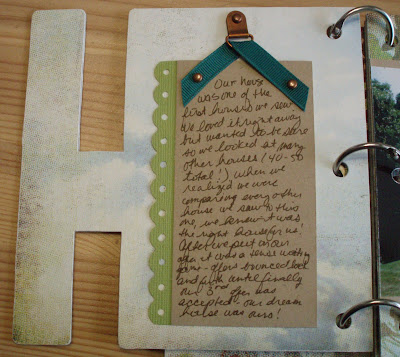 Our house
was one of the
first houses we saw.
We loved it right away
but wanted to be sure
so we looked at many
other houses (40-50
total!) when we
realized we were
comparing every other
house we saw to this
one, we knew it was
the right house for us!
After we put in our
offer it was a sense
offers bounced back
and forth until finally
our 3rd offer was
accepted - our dream
house was ours!